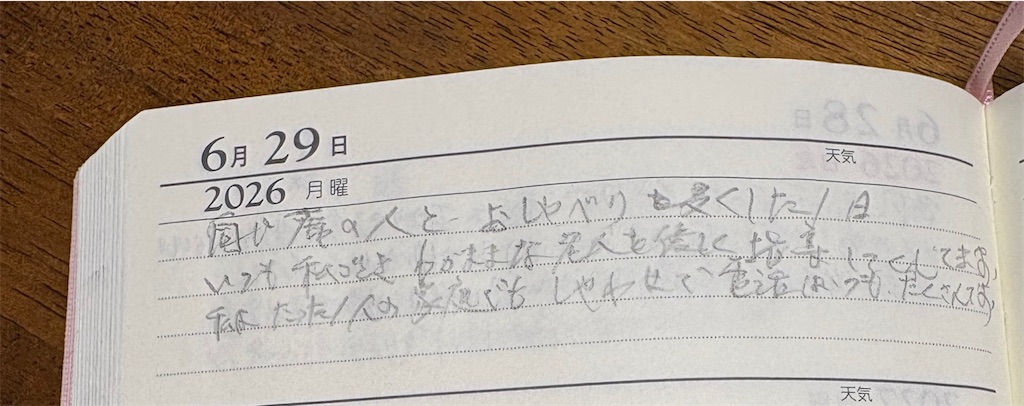 6月 29日
天気
2026 月曜
の人と おしゃべりを多くした1日
いつも わがままな老人を してくれてます
私は たった1人の家庭でも しやわせで 電話はいつも たくさんです
6月 28日
2026
天気